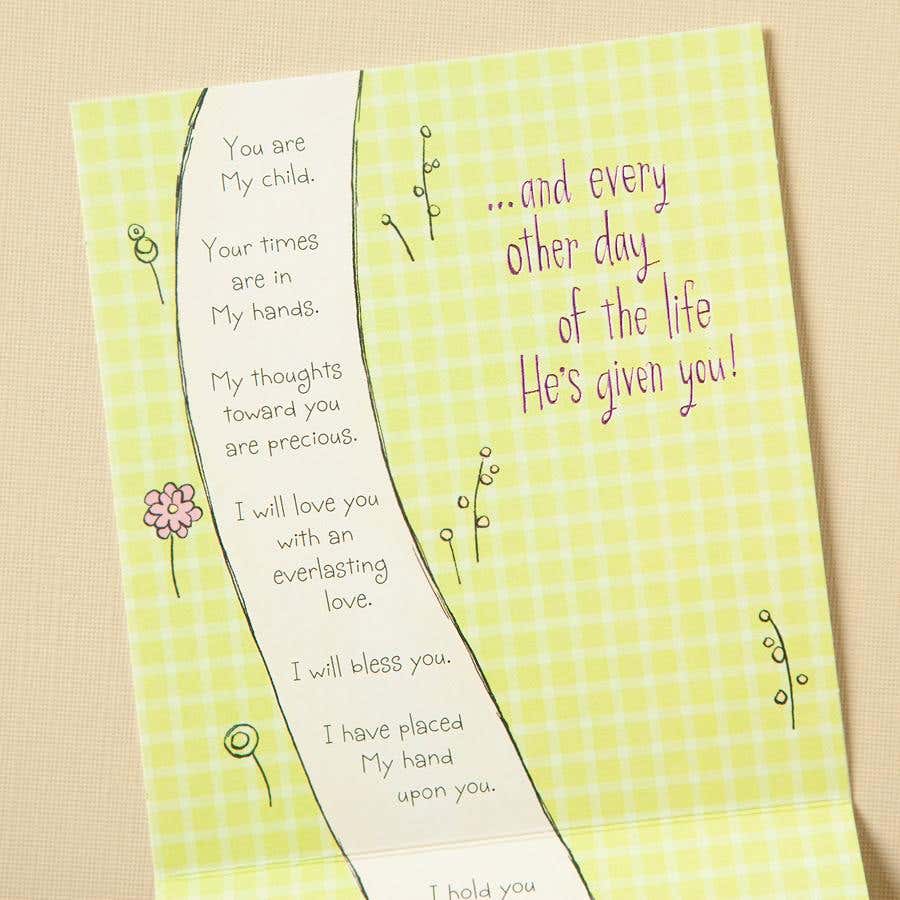 You are
My child.
Your times
are in
My hands.
My thoughts
toward you
are precious.
I will love you
with an
everlasting
love.
I will bless you.
I have placed
My hand
upon you.
I hold you
...and every
other day
of the life
He's given you!